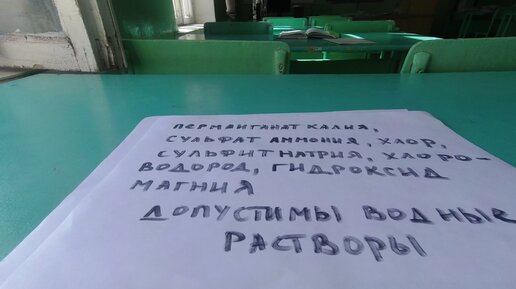 ПЕРМАНГАНАТ КАЛИЯ,
СУЛЬФАТ АММОНИЯ, ХЛОР,
СУЛЬФИТ НАТРИЯ, ХЛОРО-
ВОДОРОД, ГИДРОКСИД
МАГНИЯ
ДОПУСТИМЫ ВОДНЫЕ
РАСТВОРЫ